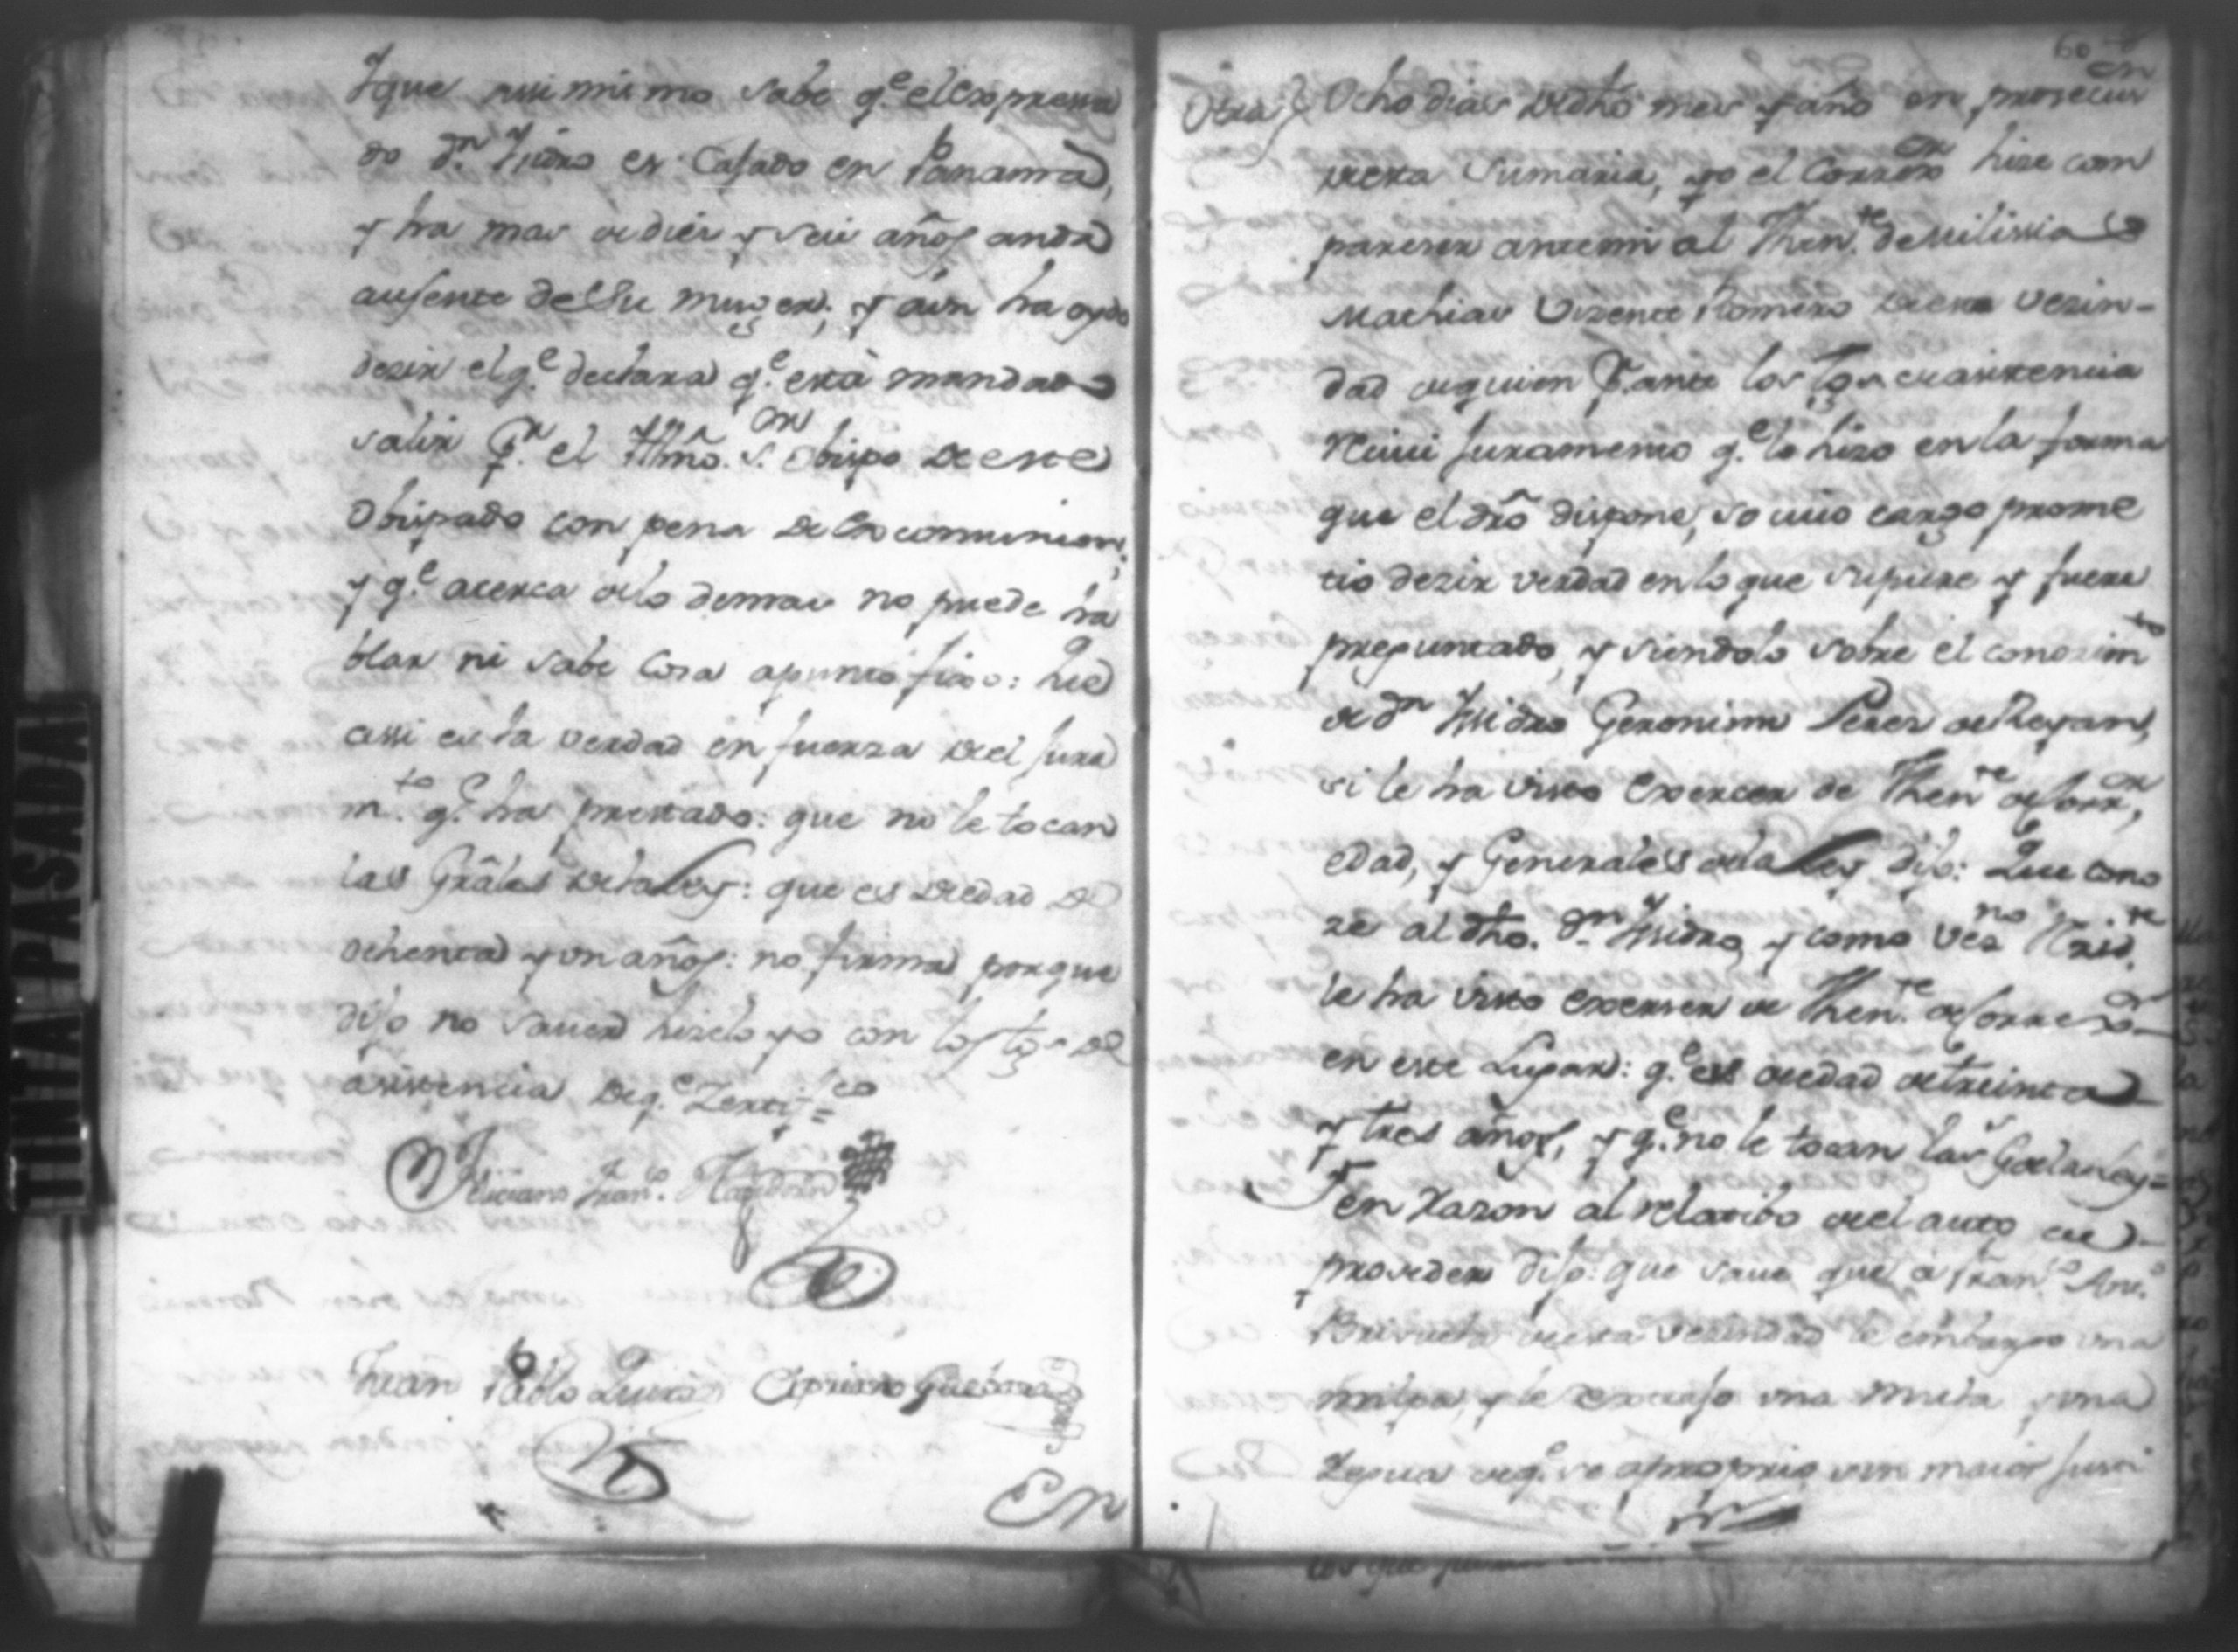 Y que assi mismo sabe q.e el expressa
do d.n Ysidro es Casado en Panama,
y ha mas de diez y seis años anda
ausente de su muger; y aun ha oydo
dezir el q.e declara q.e està mandado
salir p.r el Yllmô. S.or Obispo de este
Obispado con pena de Excomunion;
y q.e acerca de lo demas no puede ha
blar ni sabe cosa apunto fixo: que
assi es la verdad en fuerza del jura
m.to q.e ha prestado: que no le tocan
las Grâles de la Ley: que es de edad de
ochenta y un años: no firma porque
dijo no saver hizelo yo con los tgs. de
asistencia de q.e Zertifco=
Feliciano Fran.co
Juan Pablo Cipriano Guebara
En
60
Otra} Ocho dias de dho mes y año en prosecuon
de esta Sumaria, yo el Corregor hize com
pareser ante mi al Then.te de Milissia
Mathias Vizente Romero de esta Vezin-
dad de quien p.r ante los tgs. de asistencia
Reciui juramento q.e lo hizo en la forma
que el dro dispone, so cuio cargo prome
tio dezir verdad en lo que supiere y fuere
preguntado, y siendolo sobre el conozimto
de d.n Yssidro Geronimo Perez de Reyan,
si le ha visto Exercer de Then.te de Corr.or,
edad, y Generales de la Ley dijo: Que cono
ze al dho. d.n Yssidro, y como vez.no Resid.te
le ha visto exerser de Then.te de Corregor
en este Lugar: q.e es de edad de treinta
y tres años, y q.e no le tocan las G. de la Ley=
Y en razon al relatibo del auto de
proseder dijo: que saue que a Fran.co Ant.o
Brisuela de esta vezindad le embargo una
milpa, y le extrajo una mula y una
Yegua de q.e se apropio sin maior justi